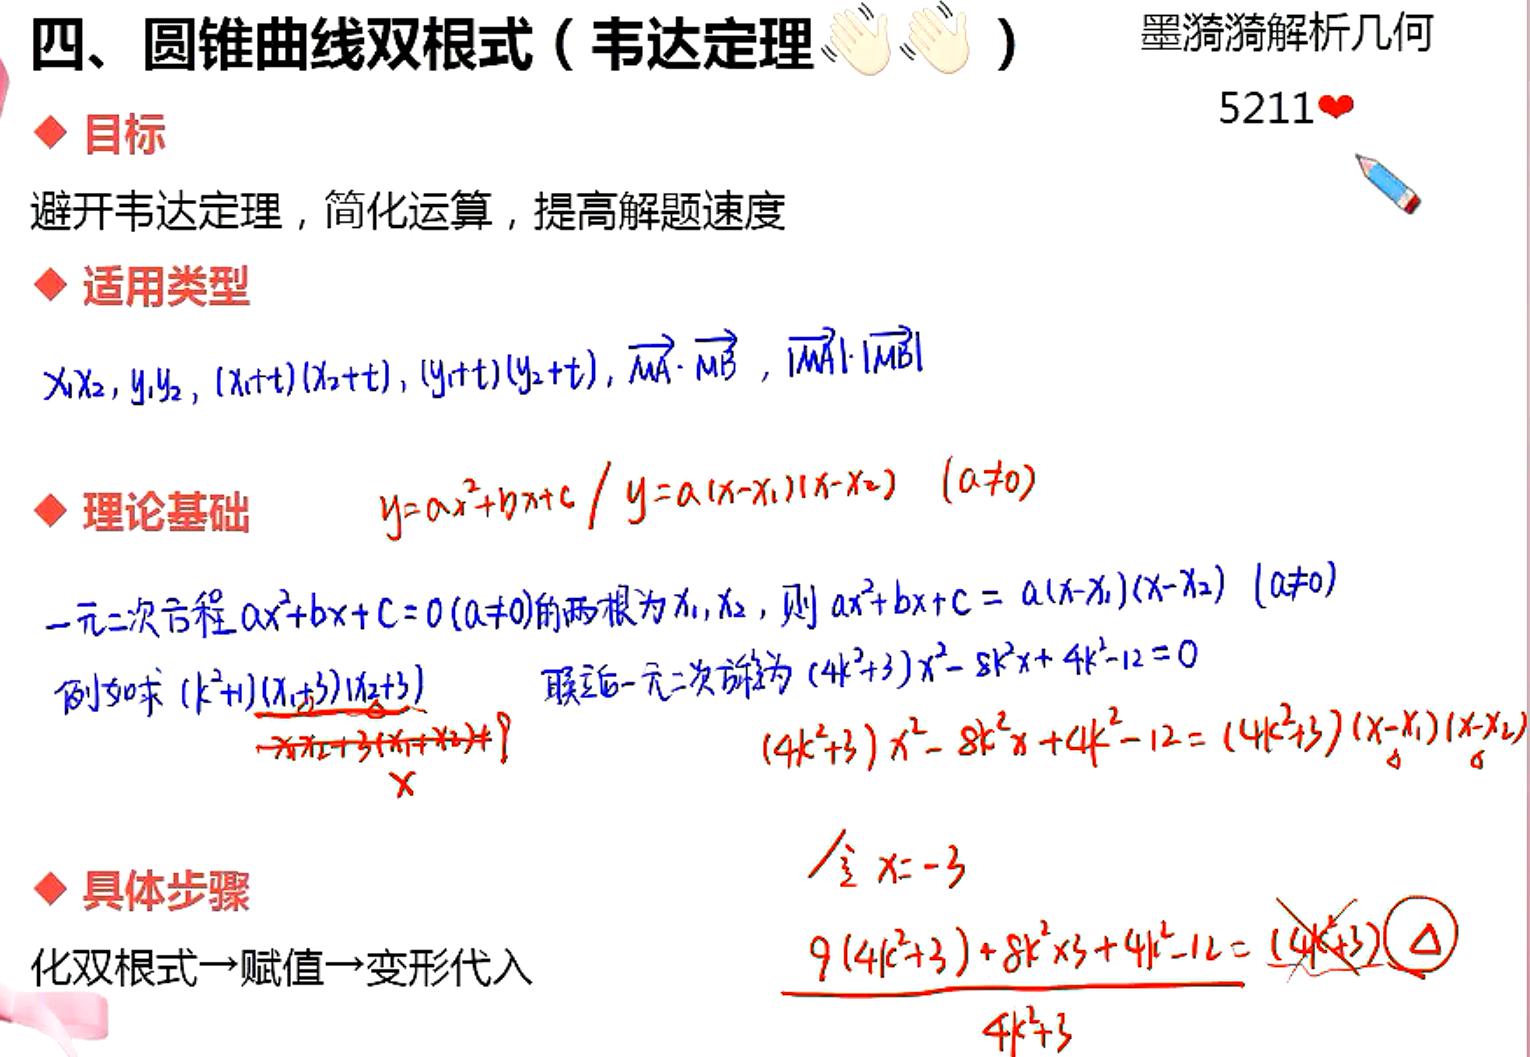 四、圆锥曲线双根式（韦达定理👋👋）
墨漪漪解析几何
5211❤
◆ 目标
避开韦达定理，简化运算，提高解题速度
◆ 适用类型
x₁x₂, y₁y₂, (x₁+t)(x₂+t), (y₁+t)(y₂+t), MA·MB, |MA|·|MB|
◆ 理论基础
y=ax²+bx+c / y=a(x-x₁)(x-x₂) (a≠0)
一元二次方程ax²+bx+c=0(a≠0)的两根为x₁,x₂, 则ax²+bx+c=a(x-x₁)(x-x₂) (a≠0)
例如求 (k²+1)(x₁+3)(x₂+3) 联立后一元二次方程为 (4k²+3)x²-8k²x+4k²-12=0
x₁x₂+3(x₁+x₂)+9
x
(4k²+3)x²-8k²x+4k²-12=(4k²+3)(x-x₁)(x-x₂)
令 x=-3
◆ 具体步骤
9(4k²+3)+8k²×3+4k²-12=(4k²+3)△
4k²+3
化双根式→赋值→变形代入